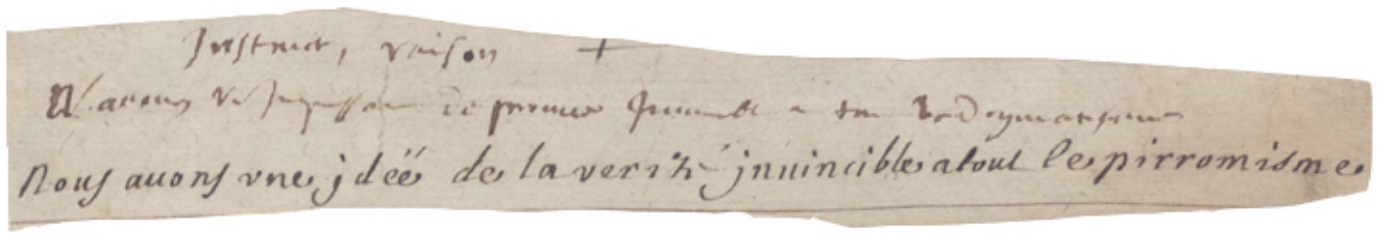 Instinct, raison +
N. auons vne Impuissance de prouuer Inuincible a tout le Dogmatisme
Nous auons vne jdéé de la verité jnuincible atout le pirromisme.